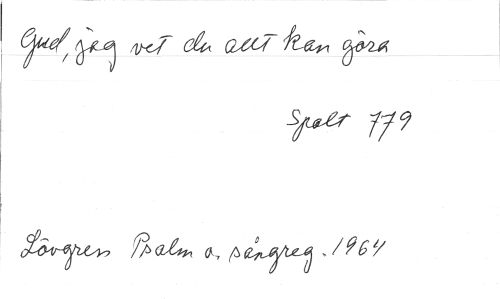 Gud, jag vet du allt kan göra
Spalt 779
Lövgrens Psalm o. sångreg. 1964